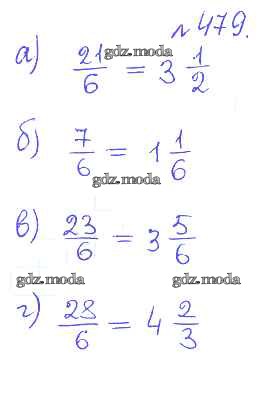 №479.
а) 21/6 = 3 1/2
gdz.moda
б) 7/6 = 1 1/6
gdz.moda
в) 23/6 = 3 5/6
gdz.moda gdz.moda
г) 28/6 = 4 2/3